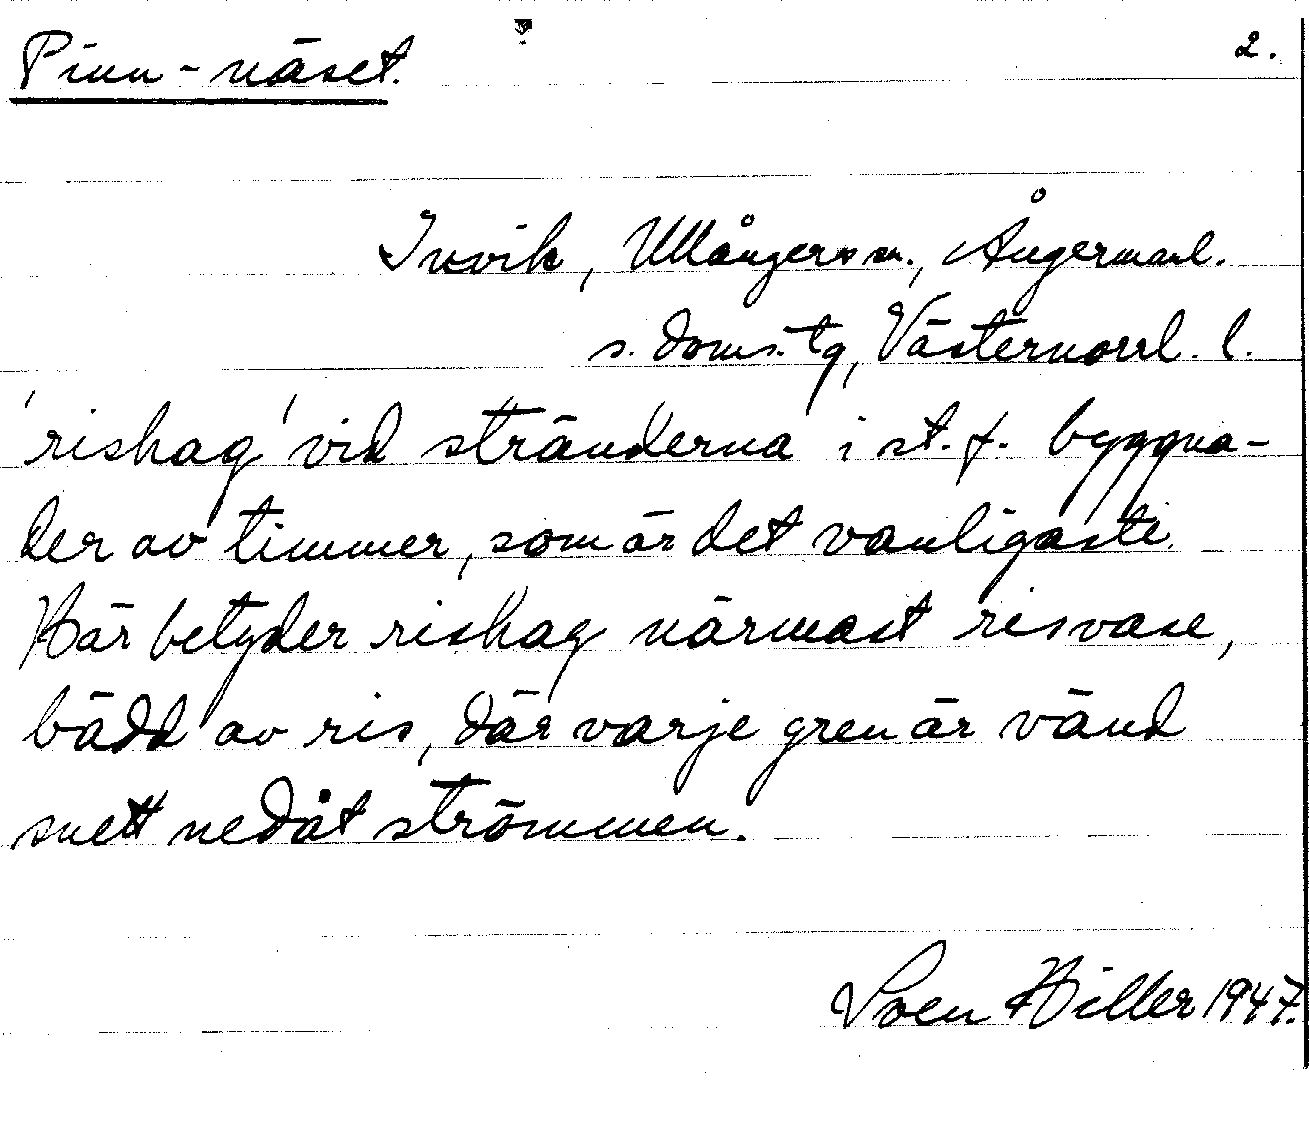 Pinn-näset. 2.
Invik, Ullångers sn., Ångermanl.
s. doms. tg, Västernorrl. l.
'rishag' vid stränderna i st. f. byggna-
der av timmer, som är det vanligaste.
Här betyder rishag närmast risvase,
bädd av ris, där varje gren är vänd
snett nedåt strömmen.
Sven Hiller 1947.